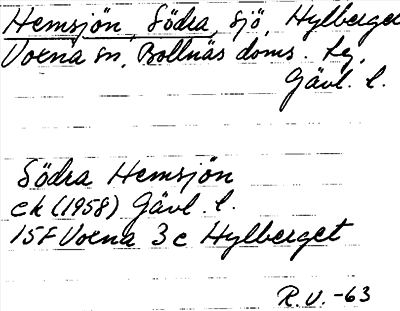 Hemsjön, Södra, sjö, Hylberget
Voxna sn, Bollnäs doms. tg,
Gävl. l.
Södra Hemsjön
ek (1958) Gävl. l.
15F Voxna 3c Hylberget
R.U. -63